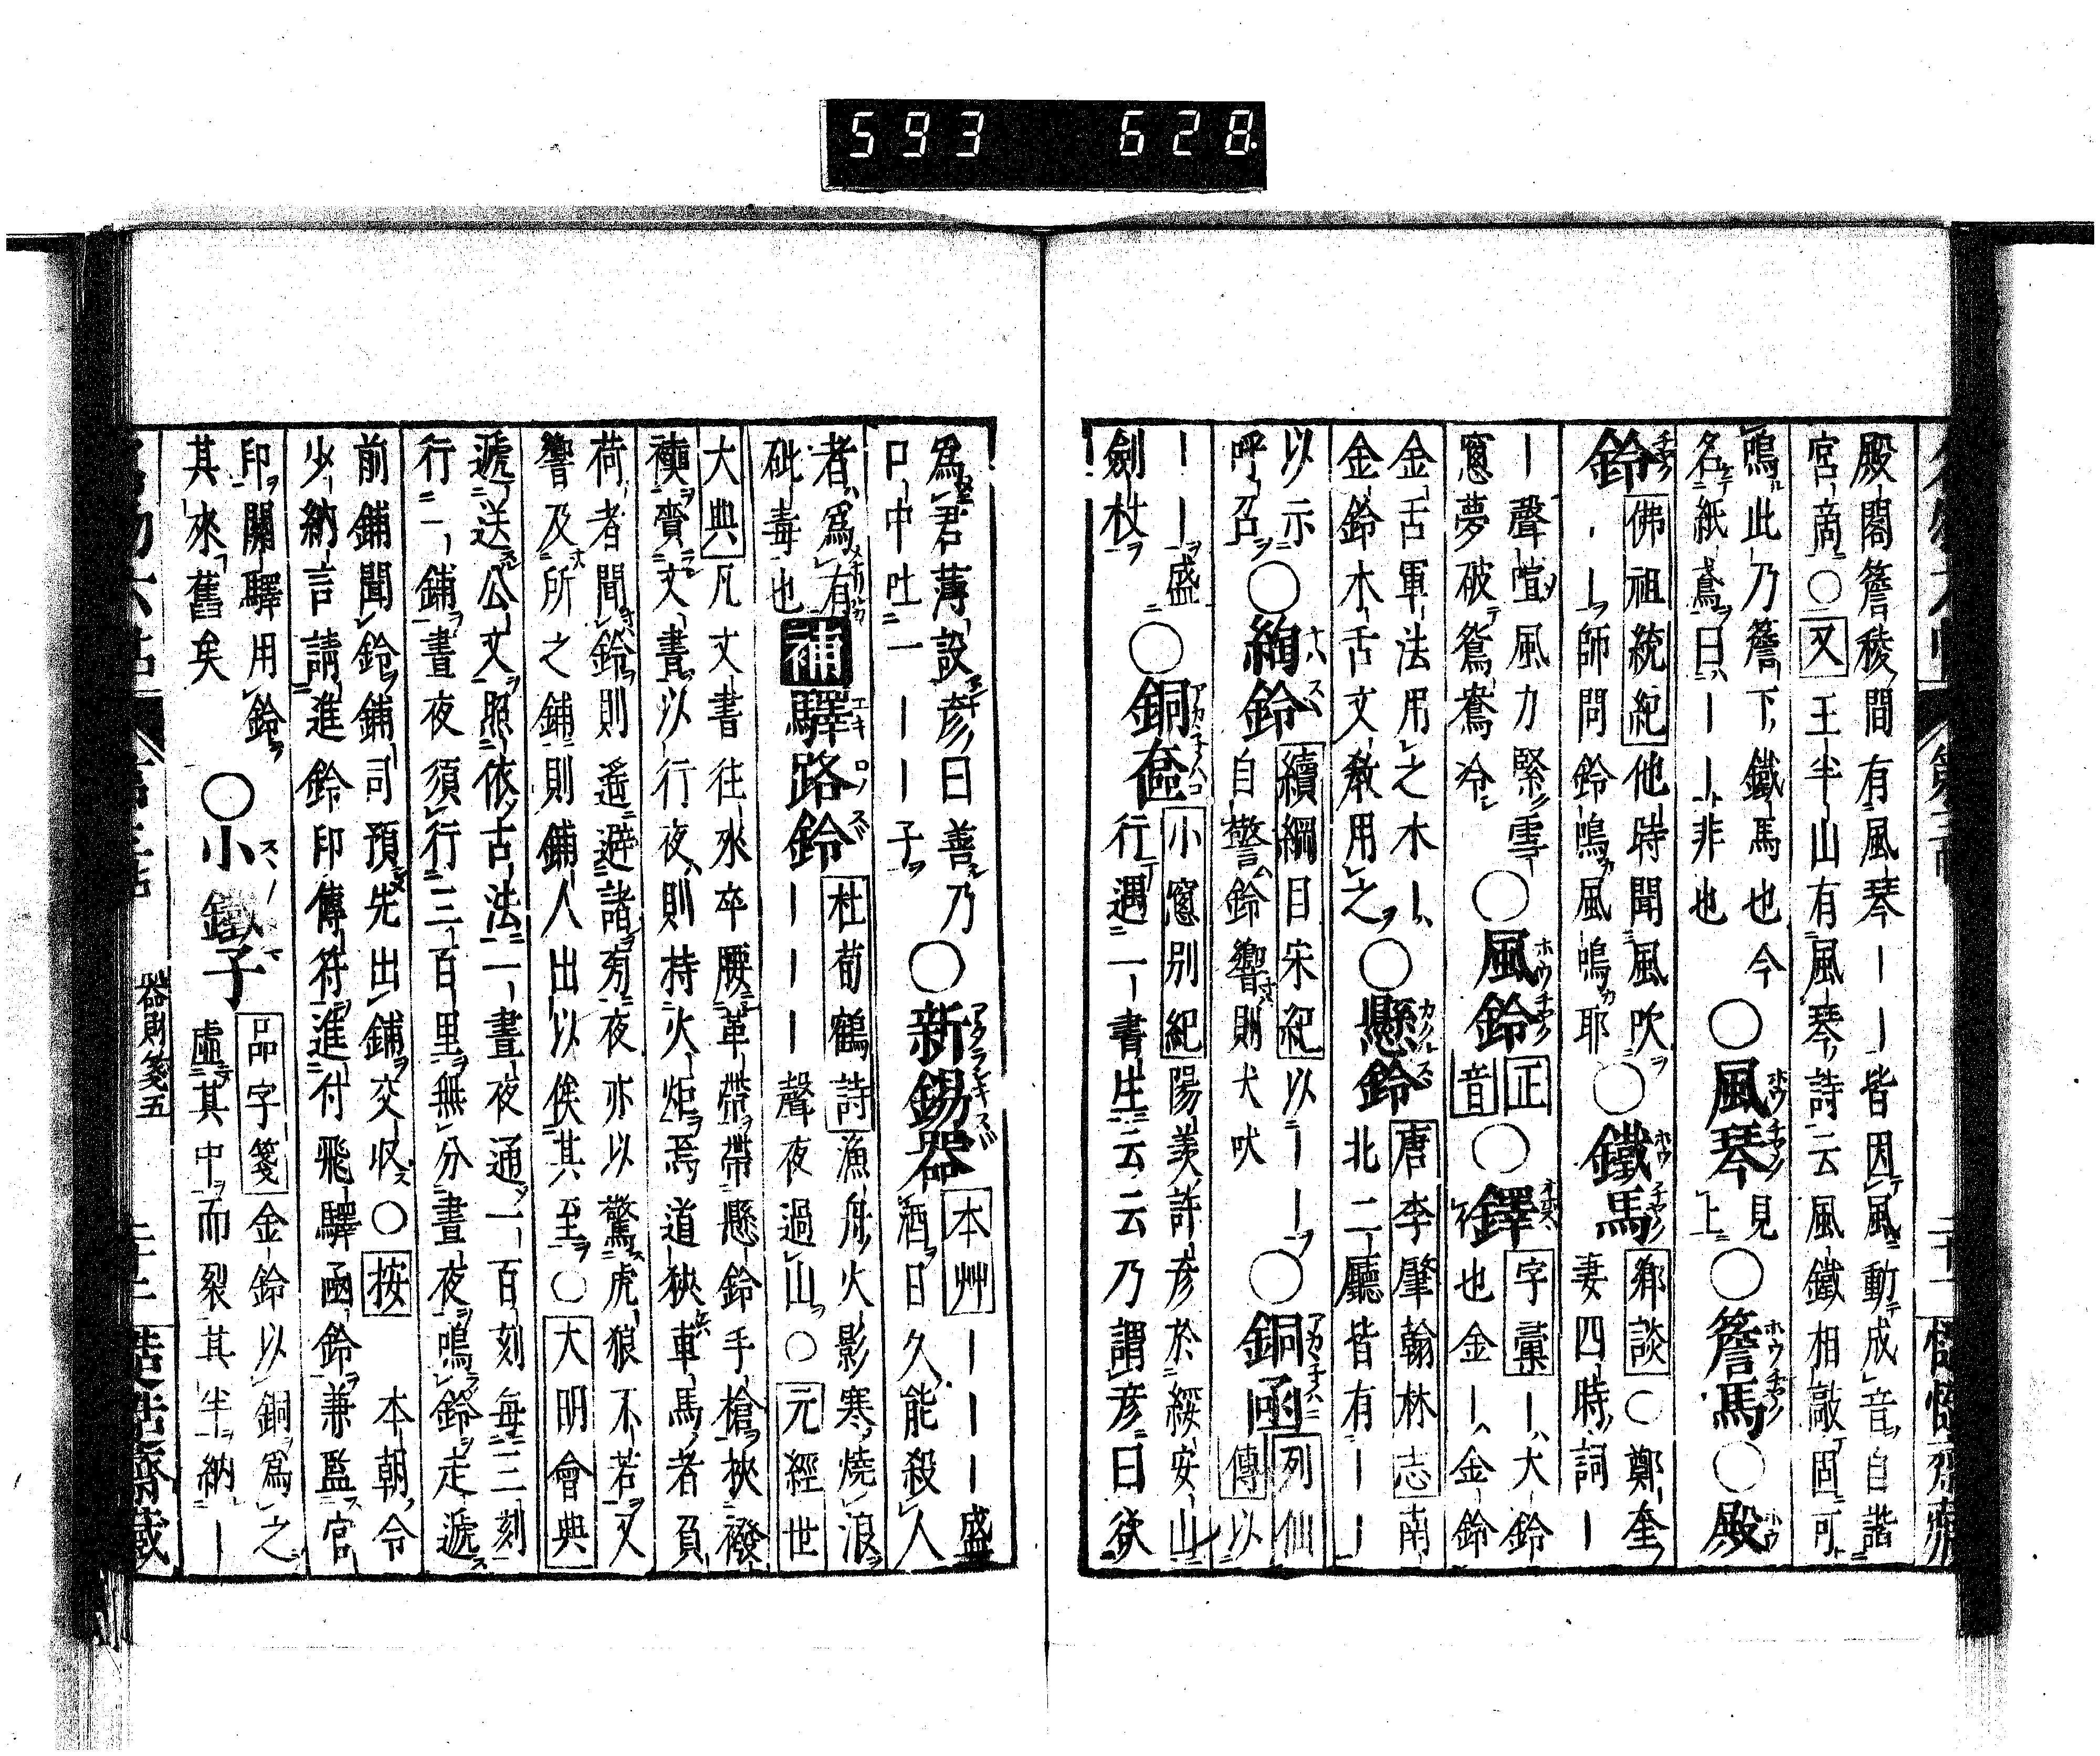 593 628
殿閣簷稜間有風琴ーー皆因風動成音自諧
宮商○又王半山有風琴詩云風鐵相敲固可
鳴此乃簷下鐵馬也今
名紙鳶曰ーー非也
○風琴見上○簷馬○殿
鈴
佛祖統紀他時聞風吹
ーー師問鈴鳴風鳴耶
○鐵馬
鄰談○鄭奎
妻四時詞ー
ー聲喧風力緊雪
窓夢破鴛鴦冷
○風鈴正音○鐸
字彙ー大鈴
也金ー金鈴
金舌軍法用之木ー
金鈴木舌文教用之
○懸鈴
唐李肇翰林志南
北二廳皆有ーー
以示
呼召
○絢鈴
續綱目宋紀以ーー
自警鈴響則犬吠
○銅函
列仙
傳以
ーー盛
劍杖
○銅奩
小窓別紀陽羨許彥於綏安山
行遇一書生云云乃謂彥曰欲
爲君薄設彥曰善乃
口中吐一ーー子
○新錫器
本艸ーーー盛
酒日久能殺人
者爲有
砒毒也
補驛路鈴
杜荀鶴詩漁舟火影寒燒浪
ーーー聲夜過山○元經世
大典凡文書往來卒腰革帶帶懸鈴手槍挾襏
襫賫文書以行夜則持火炬焉道狹車馬者負
荷者聞鈴則遥避諸旁夜亦以驚虎狼不若又
響及所之鋪則鋪人出以俟其至○大明會典
遞送公文照依古法一晝夜通一百刻每三刻
行一鋪晝夜須行三百里無分晝夜鳴鈴走遞
前鋪聞鈴鋪司預先出鋪交收○按本朝令
少納言請進鈴印傳符進付飛驛函鈴兼監官
印關驛用鈴
其來舊矣
○小鐵子
品字箋金鈴以銅爲之
虛其中而裂其半納ー
器財箋五